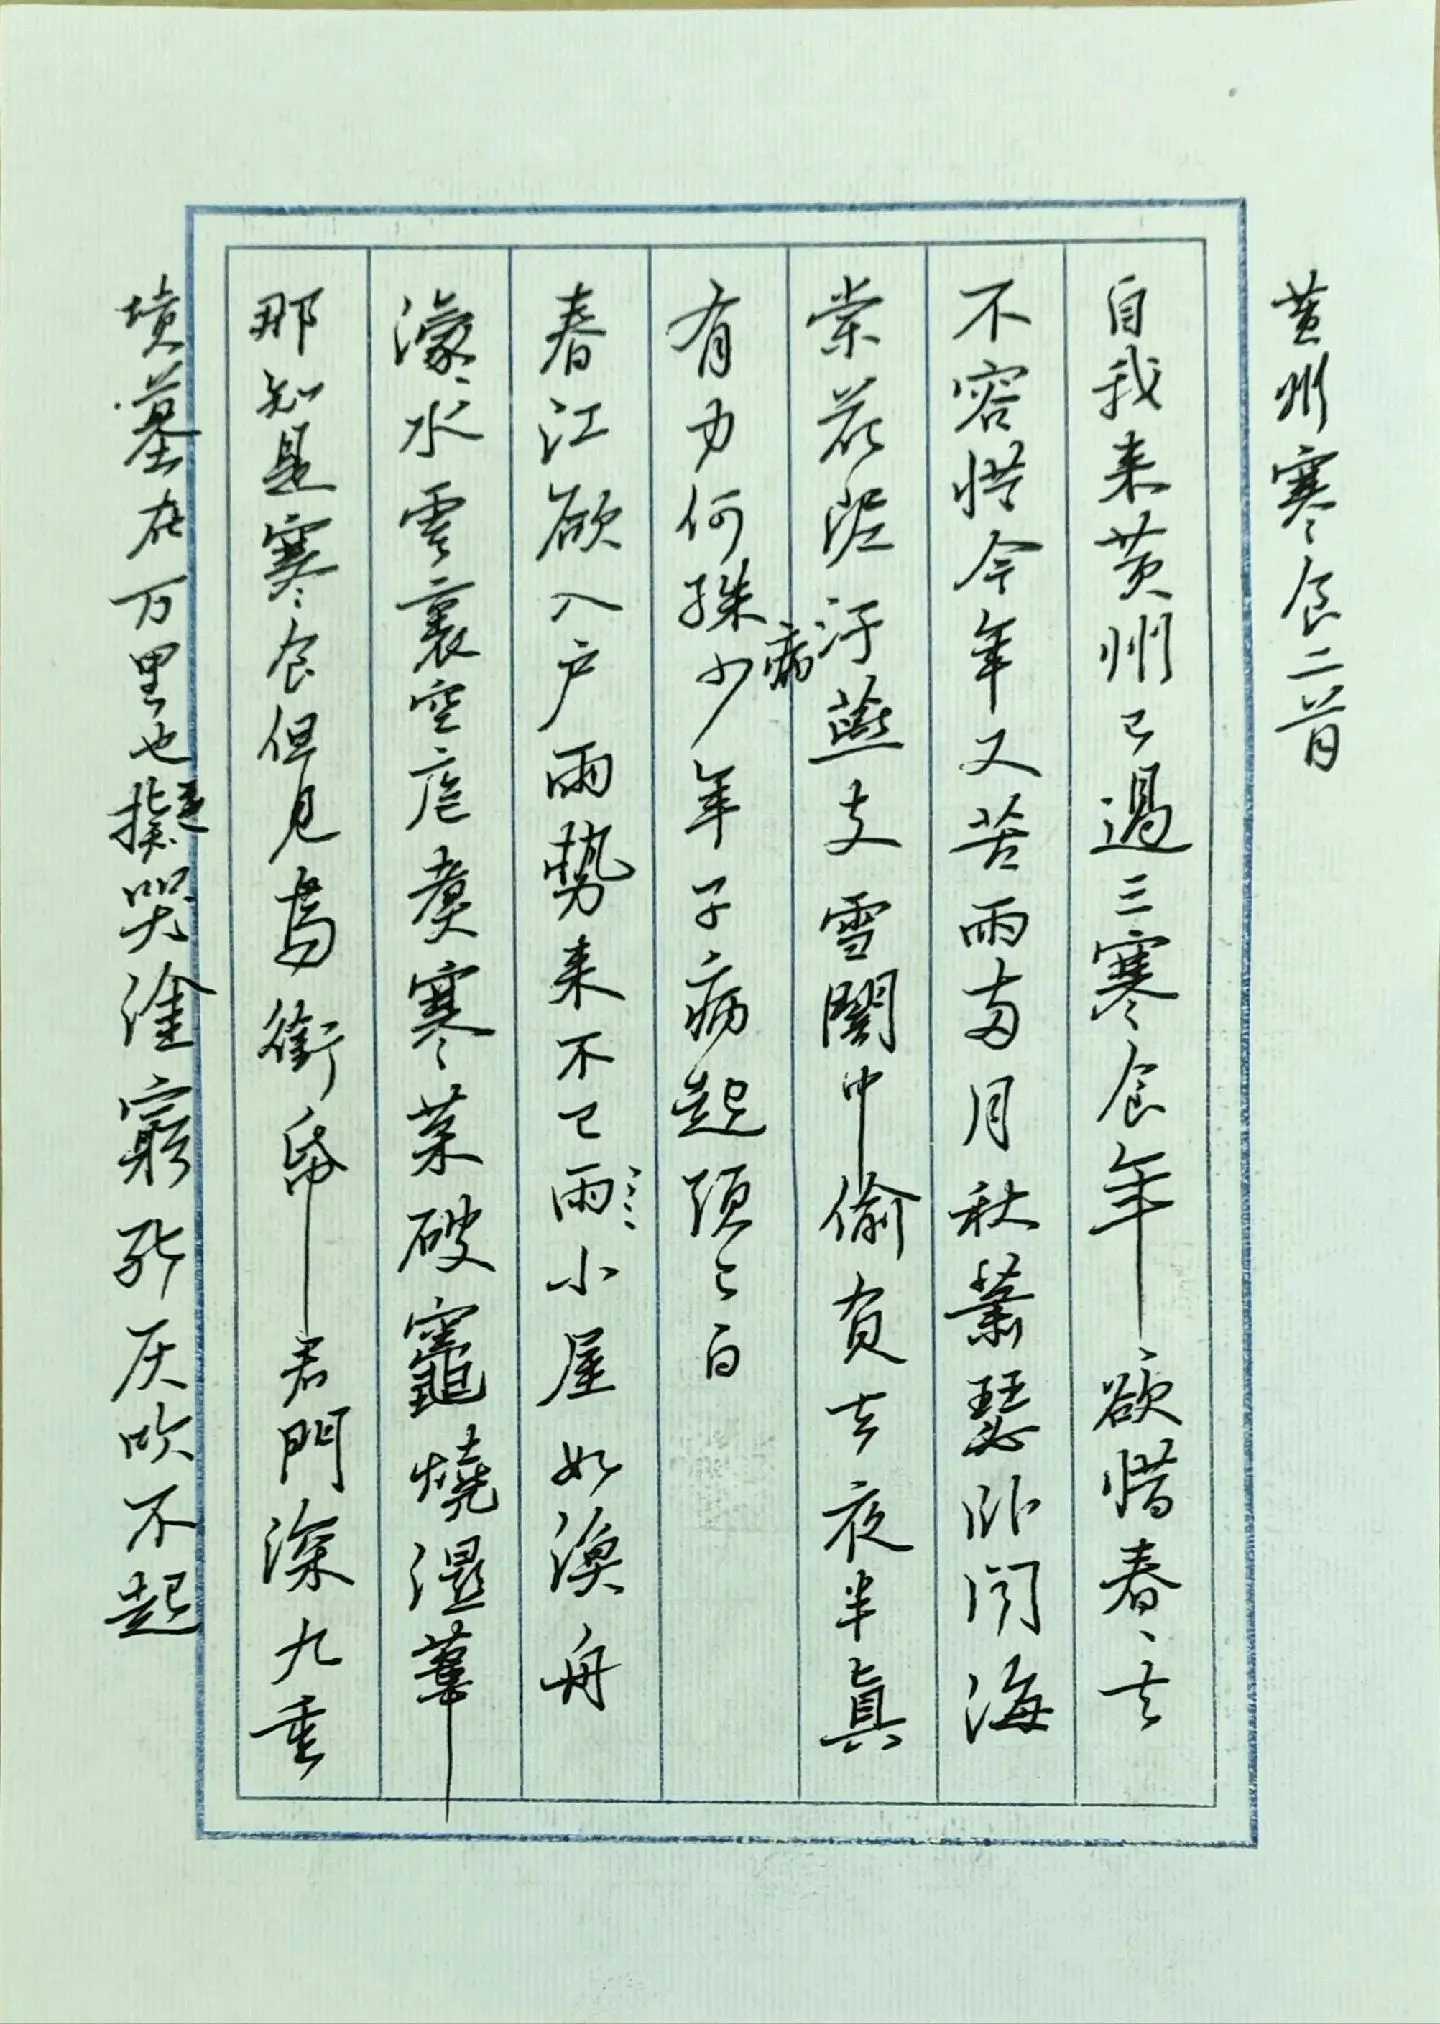 黄州寒食二首
自我来黄州已過三寒食年、欲惜春、去
不容惜今年又苦雨两月秋蕭瑟卧聞海
棠花泥汙燕支雪闇中偷負去夜半真
有力何殊少年子病起頭已白
病
春江欲入户雨勢来不已雨小屋如漁舟
濛、水雲裏空庖煮寒菜破竈燒濕葦
那知是寒食但見烏銜帋君門深九重
墳墓在万里也擬哭塗窮死灰吹不起